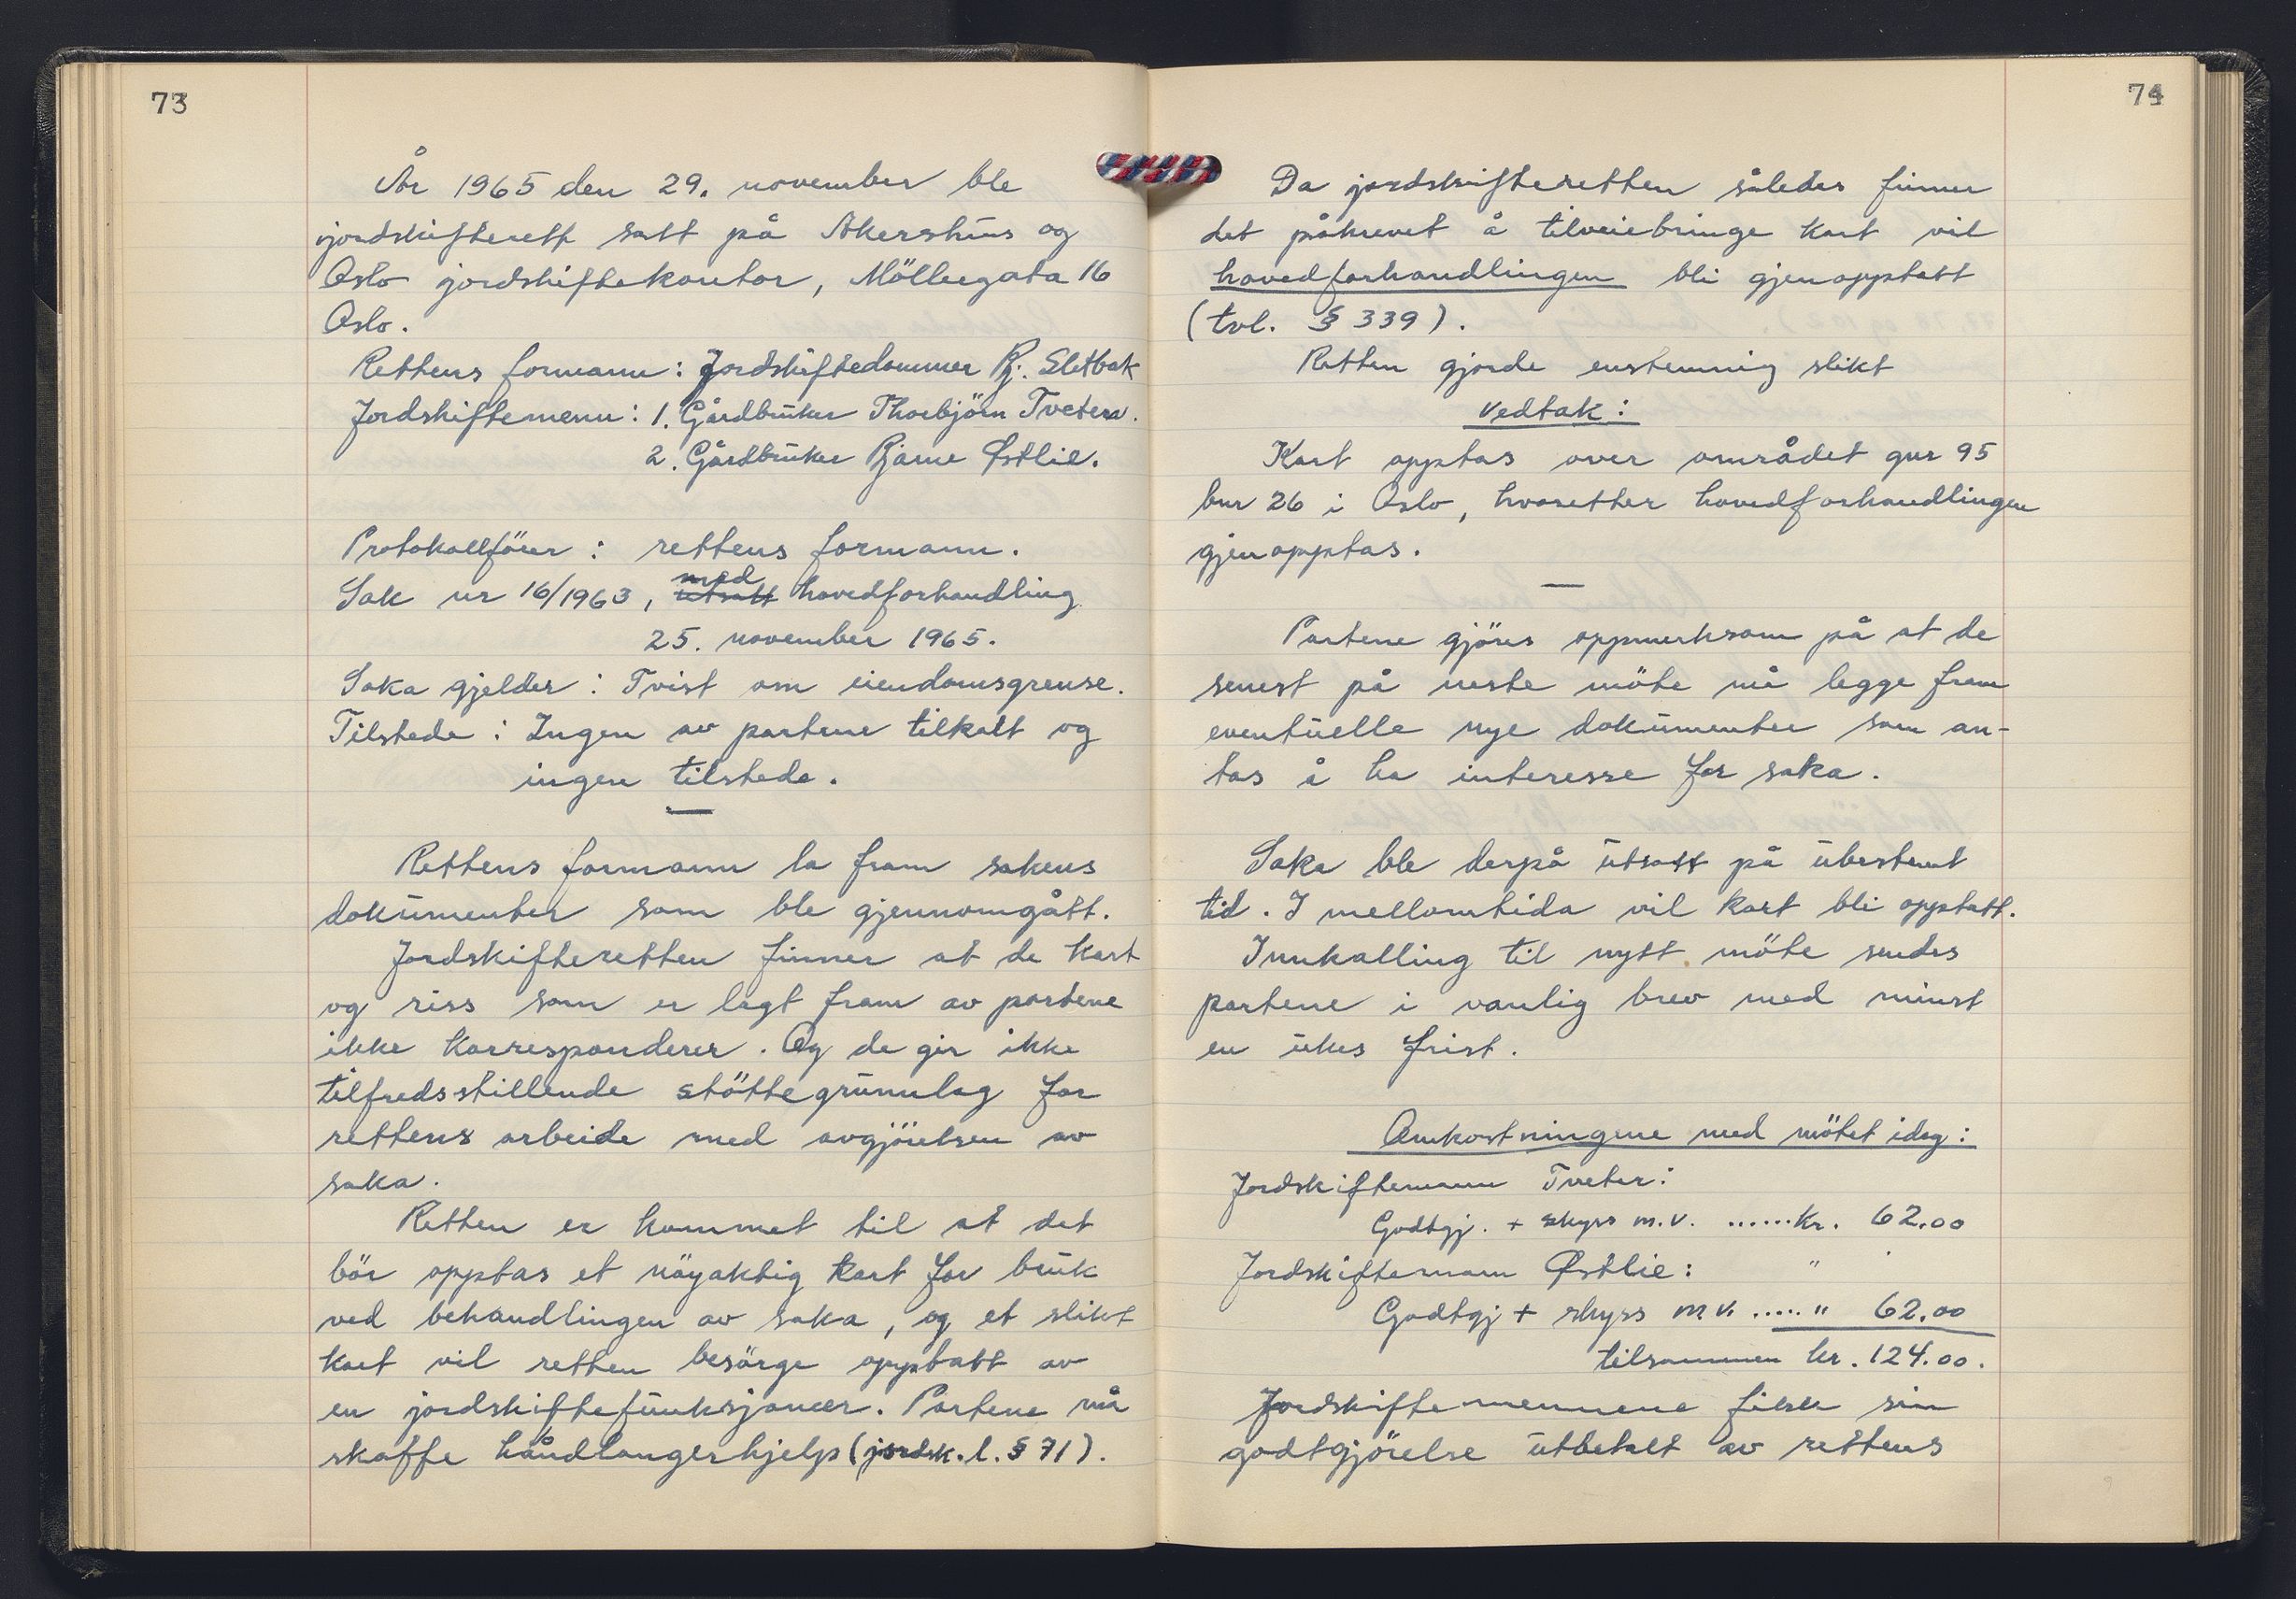 73
År 1965 den 29. november ble
jordskifterett satt på Akershus og
Oslo jordskiftekontor, Möllergata 16
Oslo.
Rettens formann: Jordskiftedommer Bj. Sletbak
Jordskiftemenn: 1. Gårdbruker Thorbjörn Tveter.
2. Gårdbruker Bjarne Østlie.
Protokollförer: rettens formann.
med
Sak nr 16/1963, utsatt hovedforhandling
25. november 1965.
Saka gjelder: Tvist om eiendomsgrense.
Tilstede: Ingen av partene tilkalt og
ingen tilstede.
Rettens formann la fram sakens
dokumenter som ble gjennomgått.
Jordskifteretten finner at de kart
og riss som er lagt fram av partene
ikke korresponderer. Og de gir ikke
tilfredsstillende støttegrunnlag for
rettens arbeide med avgjörelsen av
saka.
Retten er kommet til at det
bör opptas et nöyaktig kart for bruk
ved behandlingen av saka, og et slikt
kart vil retten besörge opptatt av
en jordskiftefunksjonær. Partene må
skaffe håndlangerhjelp (jordsk.l. § 71).
74
Da jordskifteretten således finner
det påkrevet å tilveiebringe kart vil
hovedforhandlingen bli gjenopptatt
(tvl. § 339).
Retten gjorde enstemmig slikt
vedtak:
Kart opptas over området gnr 95
bnr 26 i Oslo, hvoretter hovedforhandlingen
gjenopptas.
Partene gjöres oppmerksom på at de
senest på neste möte må legge fram
eventuelle nye dokumenter som an-
tas å ha interesse for saka.
Saka ble derpå utsatt på ubestemt
tid. I mellomtida vil kart bli opptatt.
Innkalling til nytt möte sendes
partene i vanlig brev med minst
en ukes frist.
Omkostningene med mötet idag:
Jordskiftemann Tveter:
Godtgj. + skyss m.v. ......kr. 62.00
Jordskiftemann Østlie: "
Godtgj + skyss m.v. ..... " 62.00
tilsammen kr. 124.00.
Jordskiftemennene fikk sin
godtgjörelse utbetalt av rettens